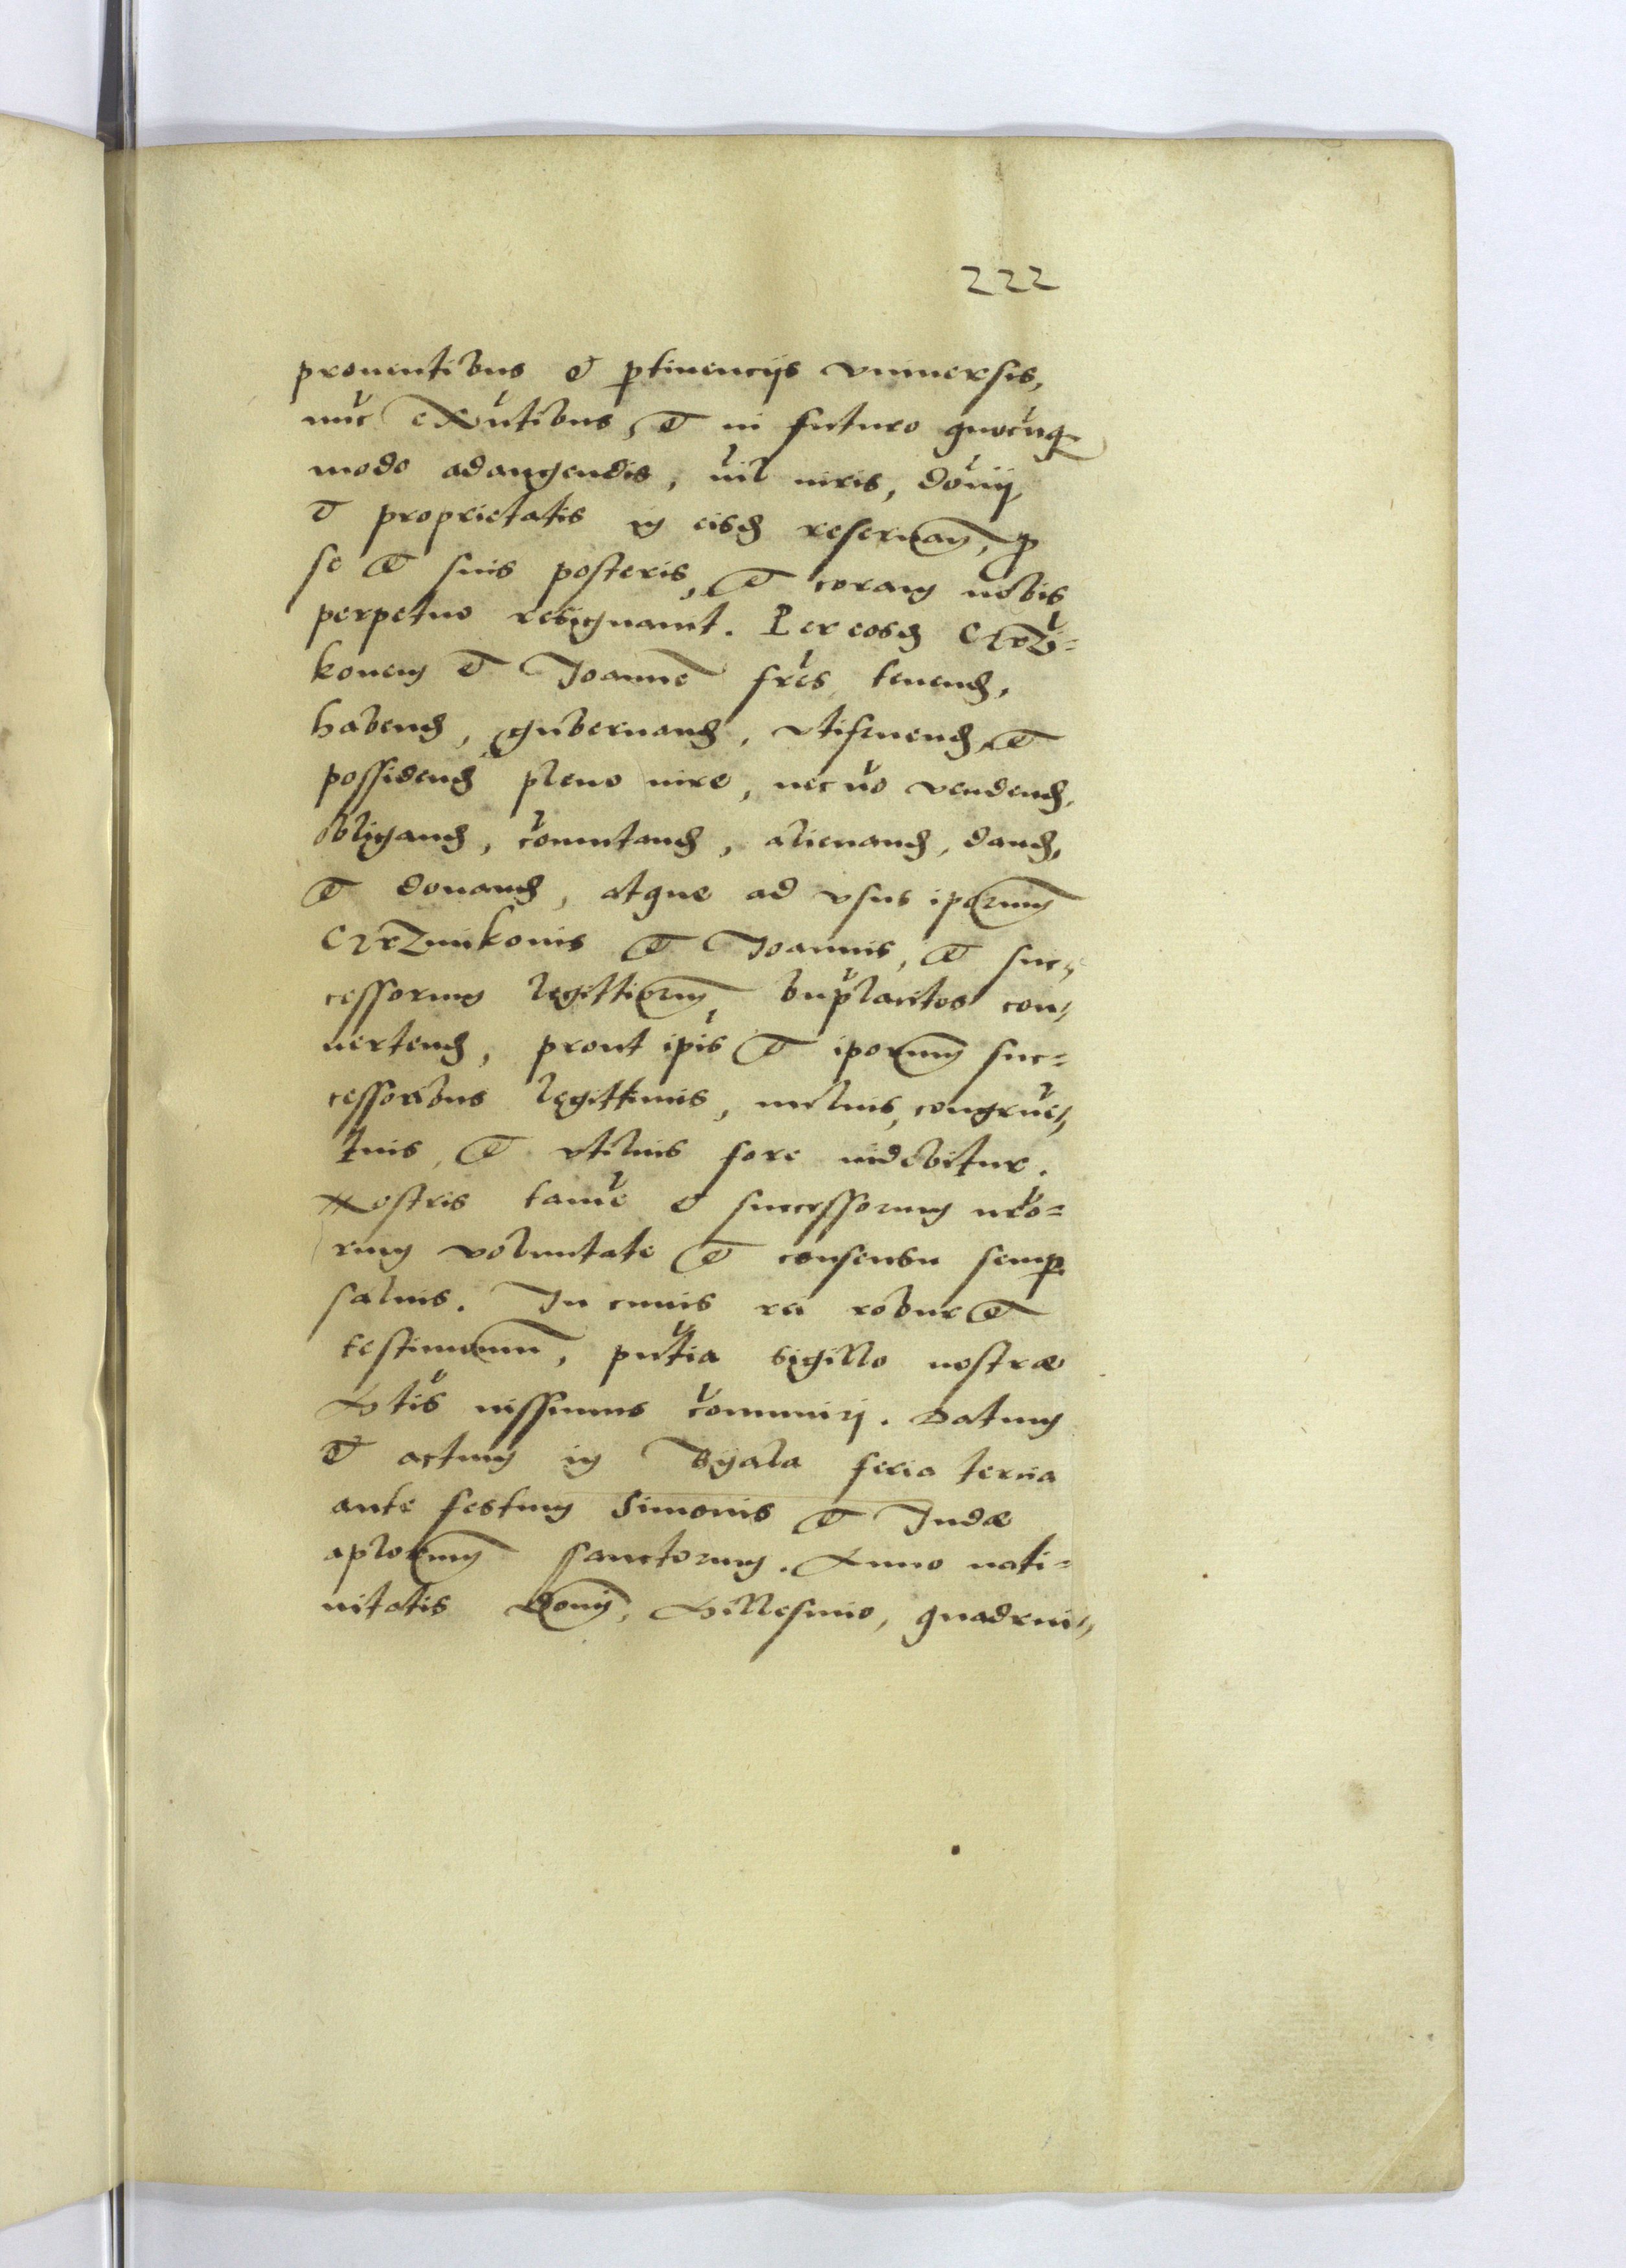 222
prouentibus et ptinencijs vniuersis,
nuc exntibus, et in futuro quocuq
modo adaugendis, nil iuris, donij,
et proprietatis in eisd reseruan, p
se et suis posteris, et coram nobis
perpetuo resignauit. Per eosd Crzi=
konem et Joanne fres tenend,
habend, gubernand, vtifruend, et
possidend pleno iure, nec no vendend,
obligand, comutand, alienand, dand,
et donand, atque ad vsus iporum
Crzzikonis et Joannis, et suc,,
cessorum legittiorum, bnplacitos con,,
uertend, prout ipis et iporum suc=
cessoribus legittimis, melius, congrue,,
tius, et vtilius fore uidebitur.
Nostris tame et successorum nro=
rum voluntate et consensu semp
saluis. In cuius rei robur et
testimonium, pntia sigillo nostræ
Mtis iussimus comuniri. Datum
et actum in Byala feria tercia
ante festum Simonis et Judæ
aplorum sanctorum. Anno nati=
uitatis Domi, Millesimo, quadrin,,